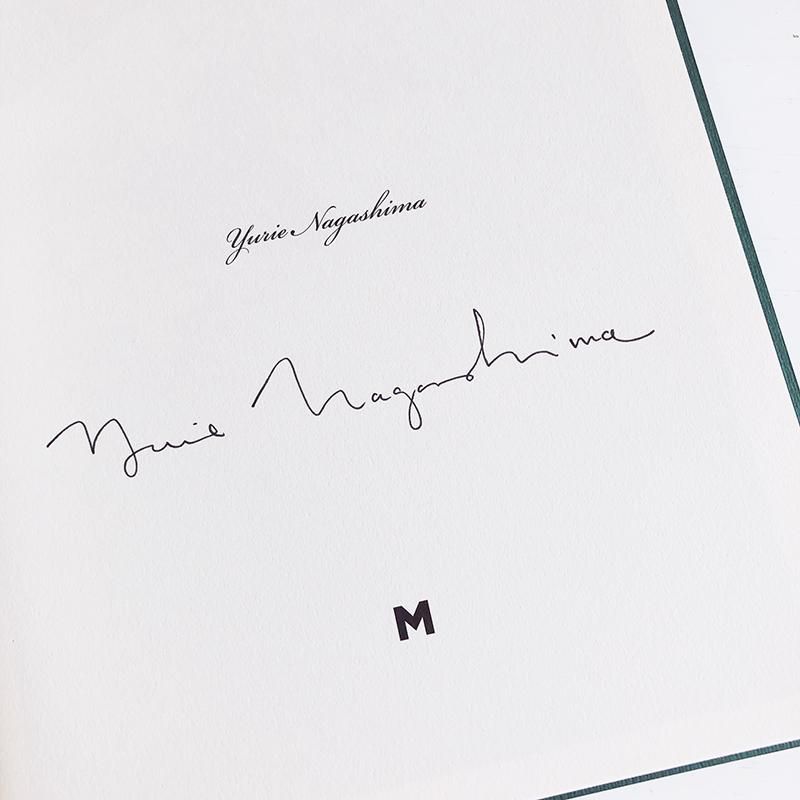 Yurie Nagashima
Yurie Nagashima
M